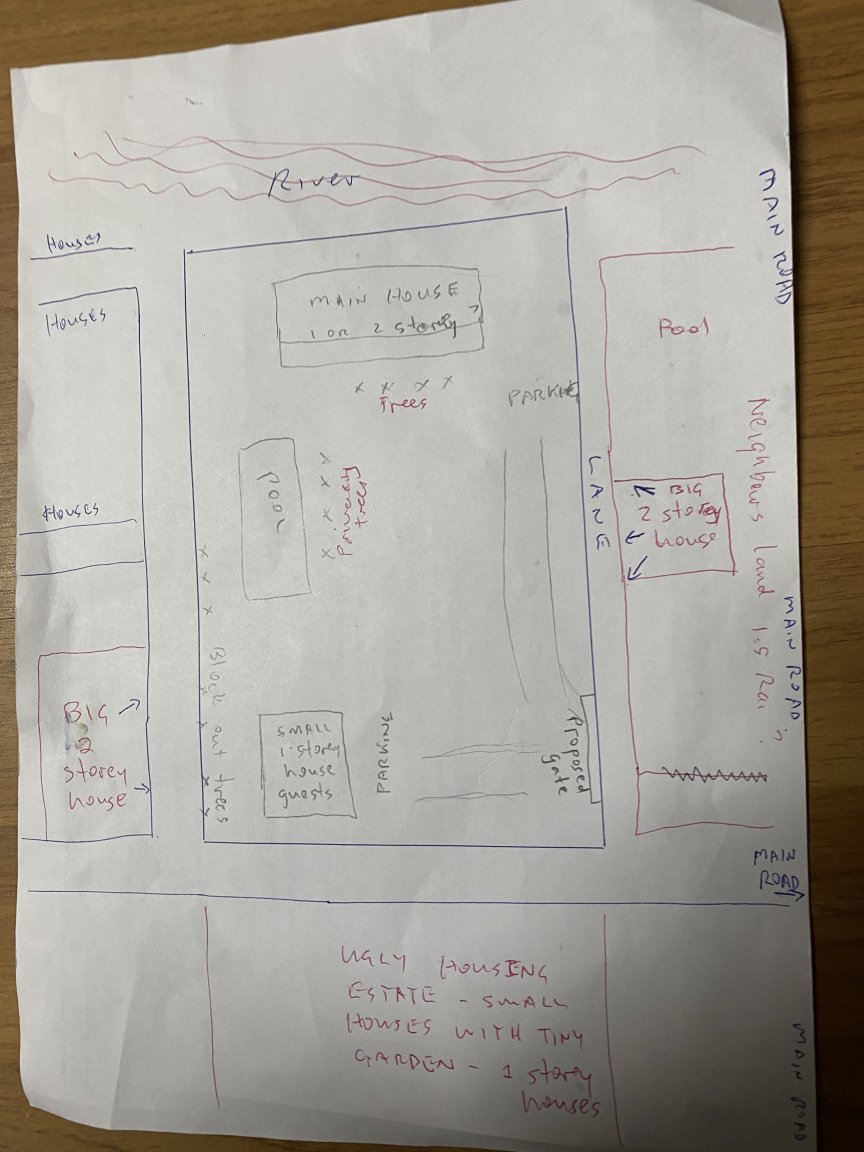 River
MAIN ROAD
Houses
Houses
MAIN HOUSE
1 OR 2 storey
Pool
Trees
PARKING
Neighbours land 1.5 Rai
LANE
POOL
privacy
trees
BIG
2 storey
house
Houses
MAIN ROAD
Block out trees
BIG
2
storey
house
SMALL
1 storey
house
guests
PARKING
Proposed
gate
MAIN
ROAD
UGLY HOUSING
ESTATE - SMALL
HOUSES WITH TINY
GARDEN - 1 storey
houses
MAIN ROAD